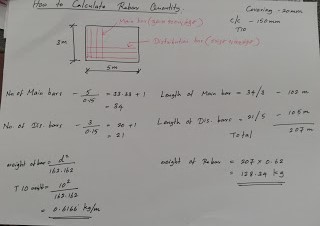 How to Calculate Rebars Quantity.
Covering - 50mm
c/c - 150mm
T10
Main bar
Distribution bar
3m
5m
No of Main bars - 5/0.15 = 33.33 + 1
= 34
No. of Dis. bars - 3/0.15 = 20 + 1
= 21
Length of Main bar = 34/3 - 102 m
Length of Dis. bars - 21/5 - 105m
Total 207 m
weight of bar = d²/162.162
T 10 = 10²/162.162
= 0.6166 kg/m
weight of Rebar = 207 x 0.62
= 128.34 kg